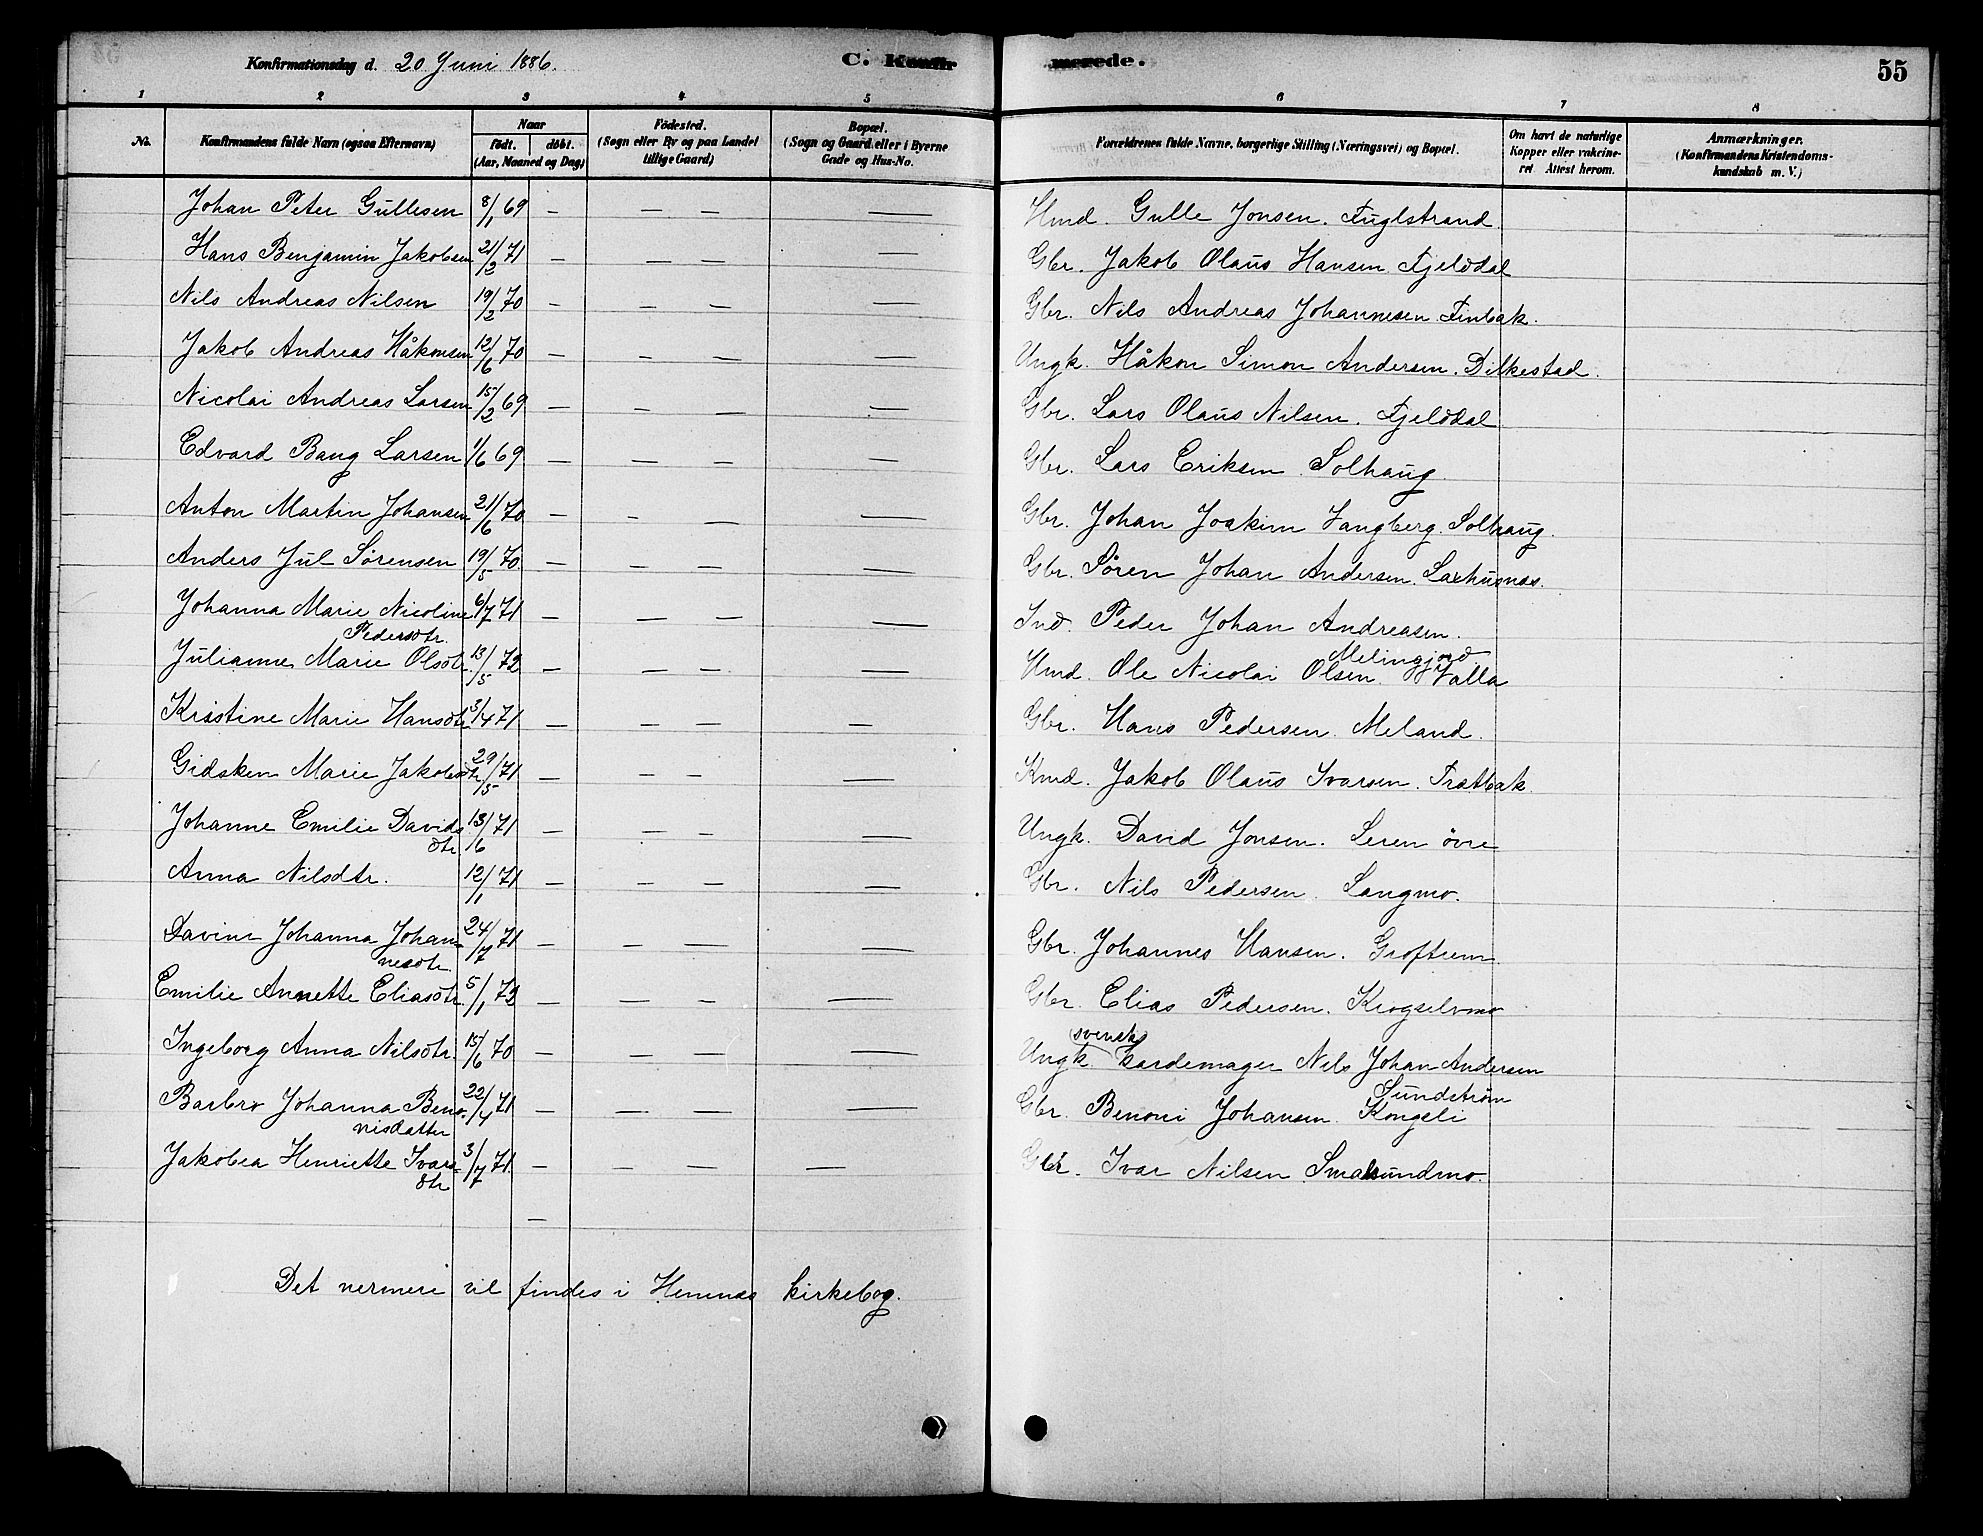 Konfirmationsdag d. 20 Juni 1886.
C. Konfir merede.
55
1 2 3 4 5 6 7 8
No.
Konfirmandens fulde Navn (ogsaa Efternavn)
Naar
födt. döbt.
(Aar, Maaned og Dag)
Födested.
(Sogn eller By og paa Landet
tillige Gaard)
Bopæl.
(Sogn og Gaard eller i Byerne
Gade og Hus-No.
Forældrenes fulde Navne, borgerlige Stilling (Næringsvei) og Bopæl.
Om havt de naturlige
Kopper eller vakcine-
ret Attest herom.
Anmærkninger.
(Konfirmandens Kristendoms-
kundskab m. V.)
Johan Peter Gullesen 8/1 69 — — — — Hmd. Gulle Jonsen. Fuglstrand
Hans Benjamin Jakobsen 21/2 71 — — — — Gbr. Jakob Olaus Hansen Fjelddal
Nils Andreas Nilsen 19/2 70 — — — — Gbr. Nils Andreas Johannesen Finbak.
Jakob Andreas Håkonsen 12/6 70 — — — — Ungk. Håkon Simon Andersen. Dilkestad.
Nicolai Andreas Larsen 15/2 69 — — — — Gbr. Lars Olaus Nilsen. Fjelddal
Edvard Bang Larsen 1/6 69 — — — — Gbr. Lars Eriksen Solhaug.
Anton Martin Johansen 21/6 70 — — — — Gbr. Johan Joakim Zangberg. Solhaug.
Anders Jul Sörensen 19/5 70 — — — — Gbr. Sören Johan Andersen. Laxhusnæs.
Johanna Marie Nicoline 6/7 71 — — — — Ind. Peder Johan Andreasen.
Pedersdtr.
Melingjord
Julianne Marie Olsdtr. 13/5 72 — — — — Hmd. Ole Nicolai Olsen. Valla
Kristine Marie Hansdtr 3/4 71 — — — — Gbr. Hans Pedersen. Meland.
Gidsken Marie Jakobsdtr 29/5 71 — — — — Kmd. Jakob Olaus Ivarsen. Frætbak
Johanne Emilie Davids 13/6 71 — — — — Ungk. David Jonsen. Leren övre
dtr.
Anna Nilsdtr. 12/1 71 — — — — Gbr. Nils Pedersen. Langmo.
Davine Johanna Johan- 24/7 71 — — — — Gbr. Johannes Hansen. Groftrem
nesdtr.
Emilie Annette Eliasdtr. 5/1 72 — — — — Gbr. Elias Pedersen. Krogselvmo
(svensk)
Ingeborg Anna Nilsdtr. 15/6 70 — — — — Ungk. Kardemager Nils Johan Andersen
Sundström
Barbro Johanna Beno- 22/4 71 — — — — Gbr. Benoni Johansen. Kongsli
nisdatter
Jakobea Henriette Ivars- 3/7 71 — — — — Gbr. Ivar Nilsen Smalsundmo.
dtr
—
Det nermere vil findes i Hemnæs kirkebog.